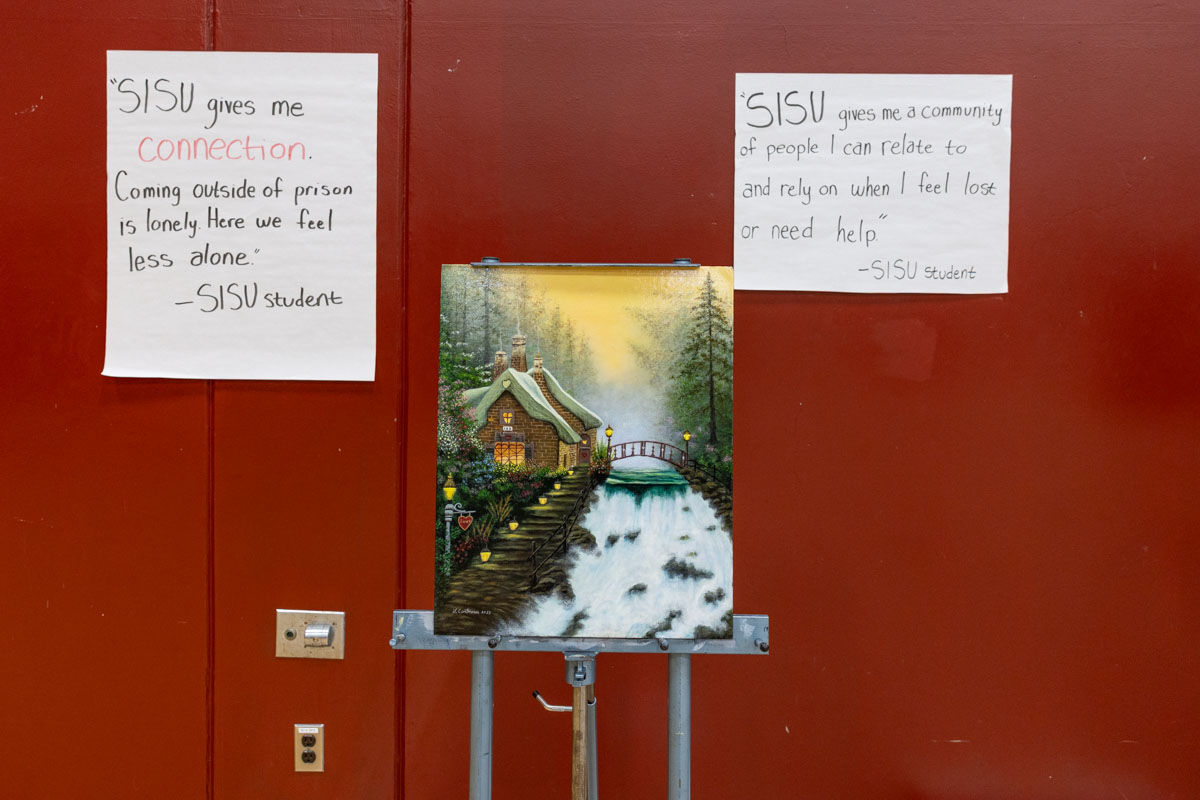 "SISU gives me
connection.
Coming outside of prison
is lonely. Here we feel
less alone."
—SISU student
"SISU gives me a community
of people I can relate to
and rely on when I feel lost
or need help."
—SISU student